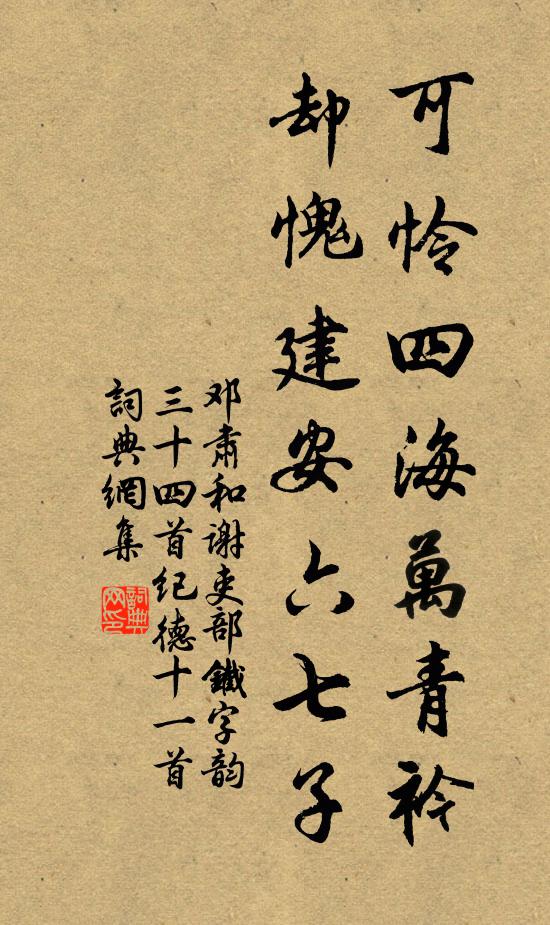 可怜四海萬青衿
却愧建安六七子
邓肅和谢吏部鐵字韵
三十四首纪德十一首
詞典網集
詞典网印